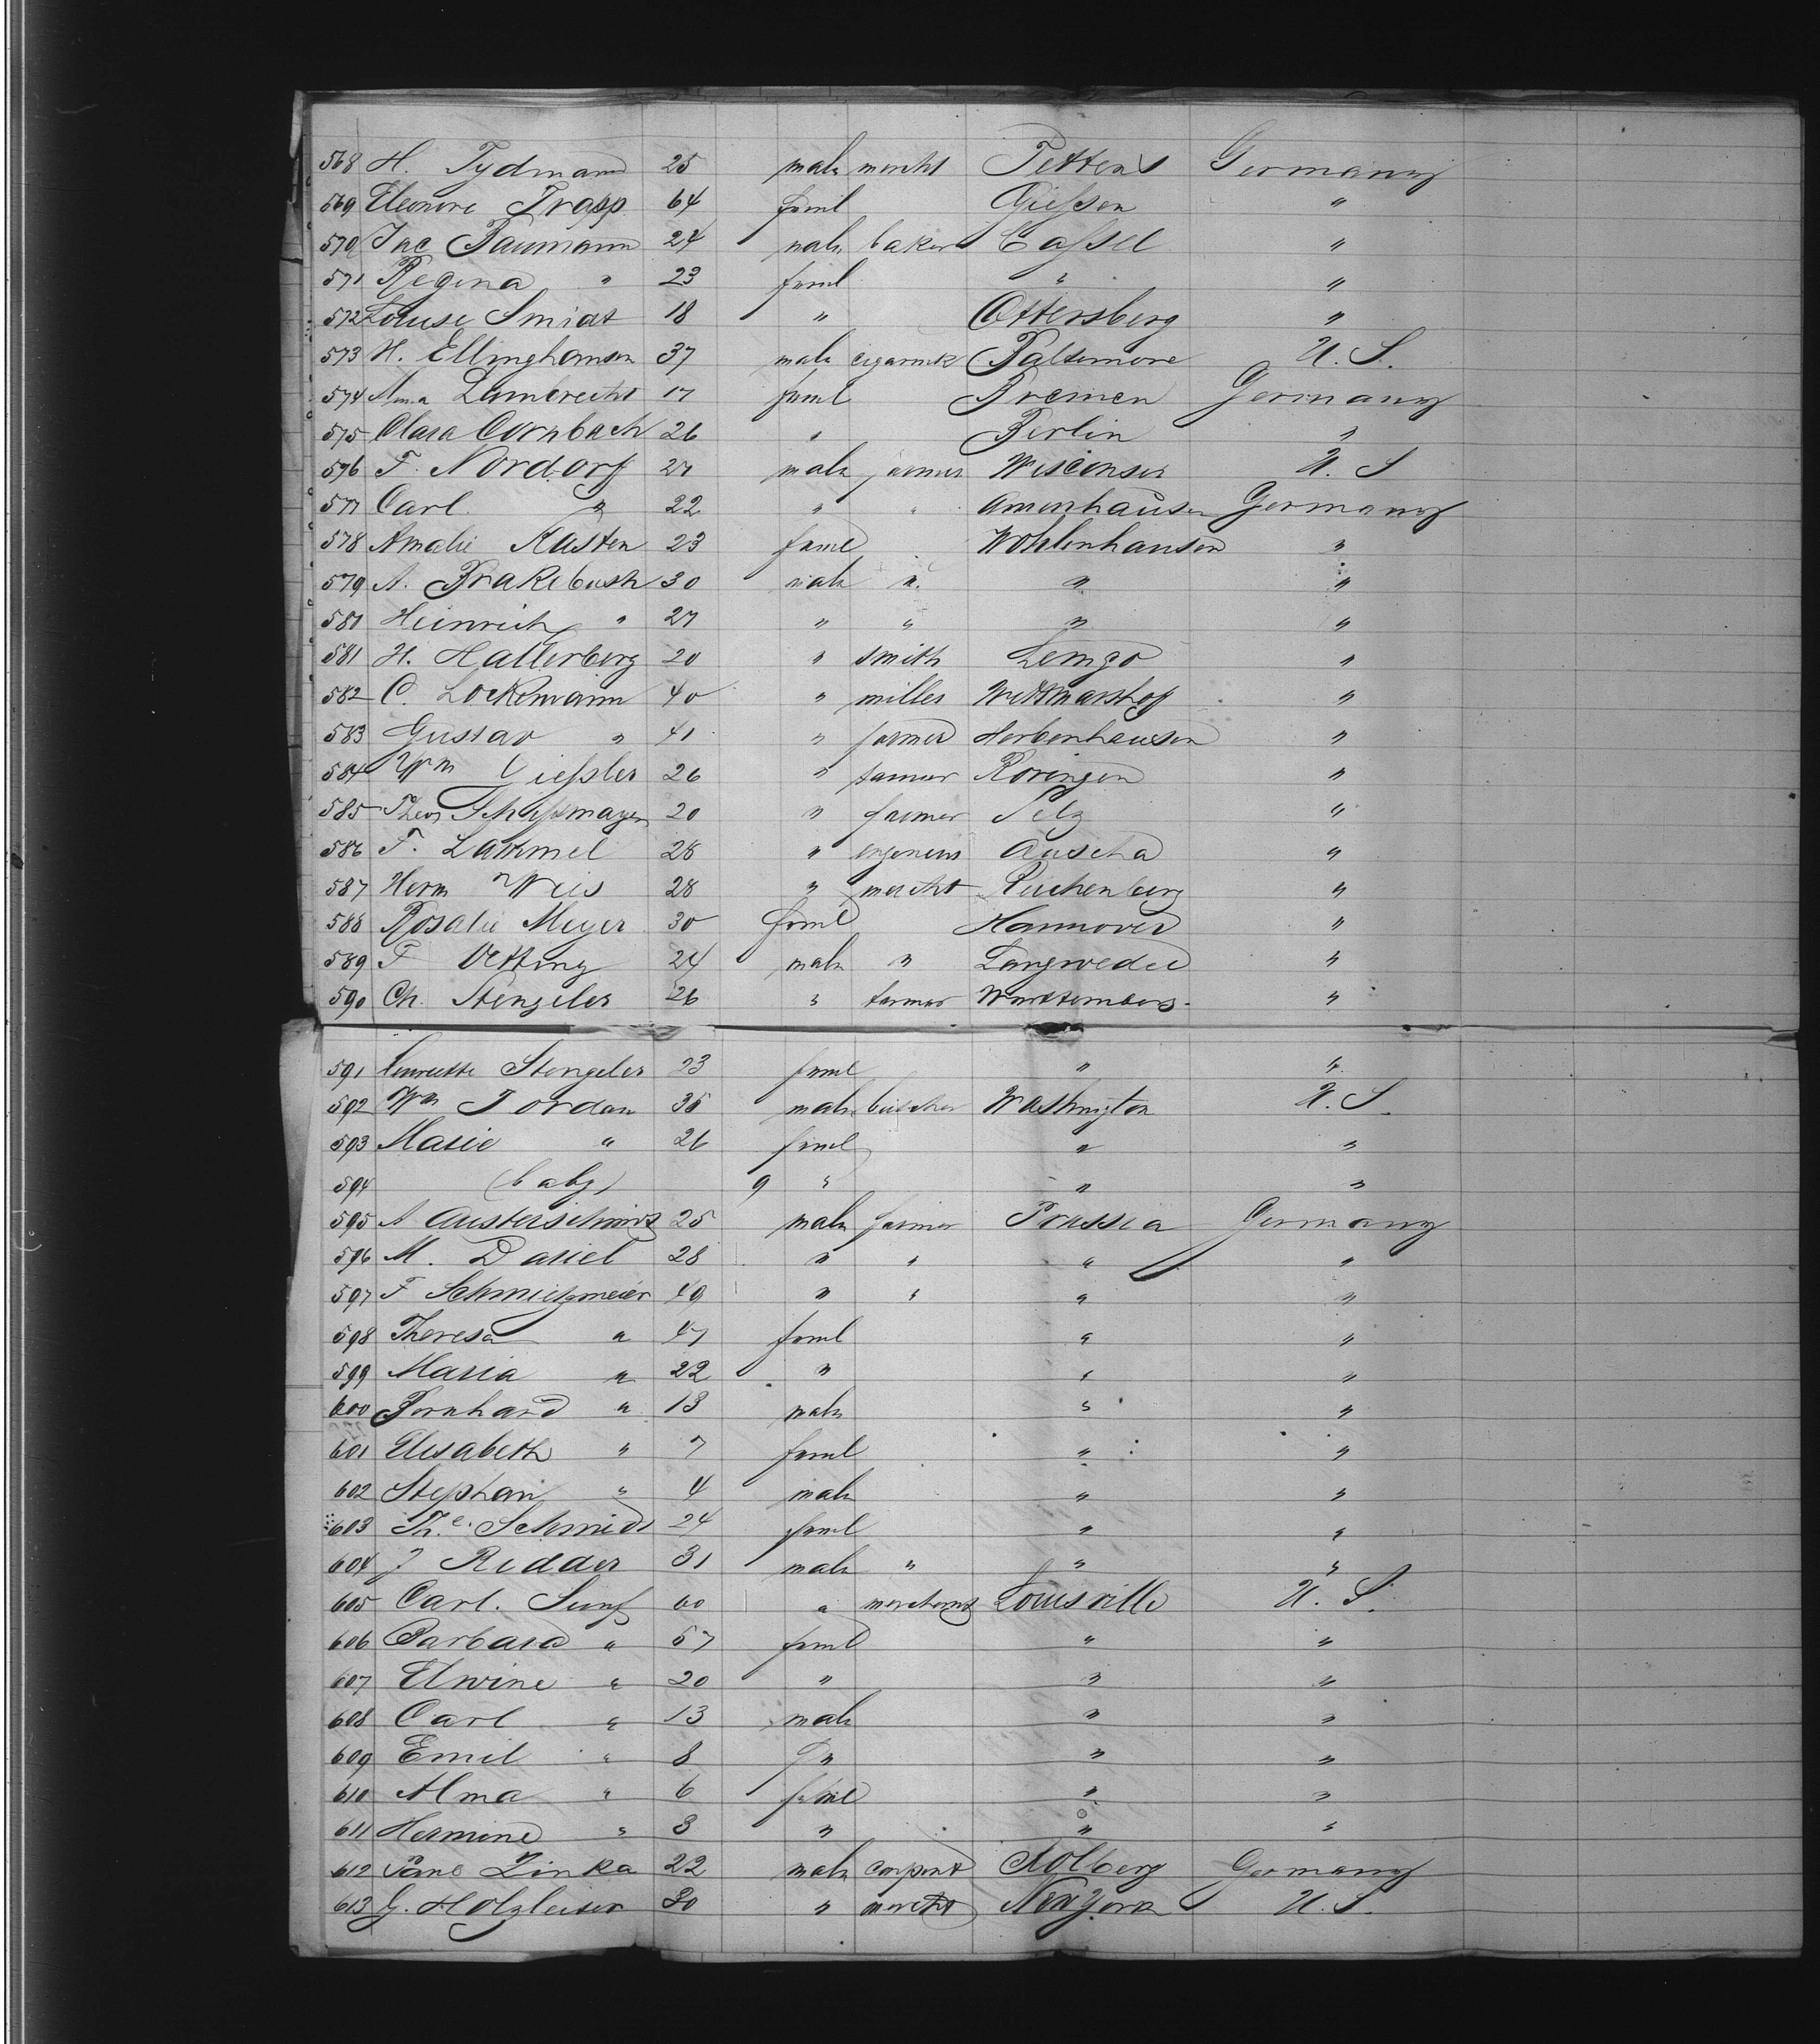 568 H. Tydmann 25 male mercht Pettens Germany
569 Eleonore Trapp 64 feml Gießen "
570 Jac Baumann 24 male baker Caßel "
571 Regina " 23 feml " "
572 Louise Smidt 18 " Ottersberg "
573 H. Ellinghausen 37 male cigarmk Baltimore U. S.
574 Anna Lambrecht 17 feml Bremen Germany
575 Clara Cornbach 26 " Berlin "
576 F. Nordorf 27 male farmer Wisconsin U. S
577 Carl " 22 " " Amenhausen Germany
578 Amalie Kasten 23 feml Wohlenhausen "
579 A. Brakebush 30 male ". " "
580 Heinrich " 27 " " " "
581 H. Hallerberg 20 " smith Lemgo "
582 C. Lockemann 40 " miller Wittmarshof "
583 Gustav " 41 " farmer Herbenhausen "
584 Wm Gießler 26 " farmer Roringen "
585 Theo 20 " farmer Selz "
586 F. Lammel 28 " engeneur Auscha "
587 Herm Weis 28 " mercht Reichenberg "
588 Rosalie Meyer 30 feml Hannover "
589 F Oetting 24 male " Langwedel "
590 Ch. Stengeler 26 " farmer Wurttemberg "
591 Henriette Stengeler 23 feml " "
592 Wm Jordan 35 male butcher Washington U. S.
593 Marie " 26 feml " "
594 (baby) 9 " " "
595 A Austerschmidt 25 male farmer Prussia Germany
596 M. Dasiel 28 " " " "
597 F Schmitzmeier 49 " " " "
598 Theresa " 47 feml " "
599 Maria " 22 " " "
600 Bernhard " 13 male " "
601 Elisabeth " 7 feml " "
602 Stephan " 4 male " "
603 Th.e. Schmidt 24 feml " "
604 J Ridder 31 male " " "
605 Carl. Sunf 60 " merchant Louisville U. S.
606 Barbara " 57 feml " "
607 Elwine " 20 " " "
608 Carl " 13 male " "
609 Emil " 8 " " "
610 Alma " 6 feml " "
611 Hermine " 3 " " "
612 Zinka 22 male carpent Kolberg Germany
613 G. Holzleiser 30 " mercht New York U. S.